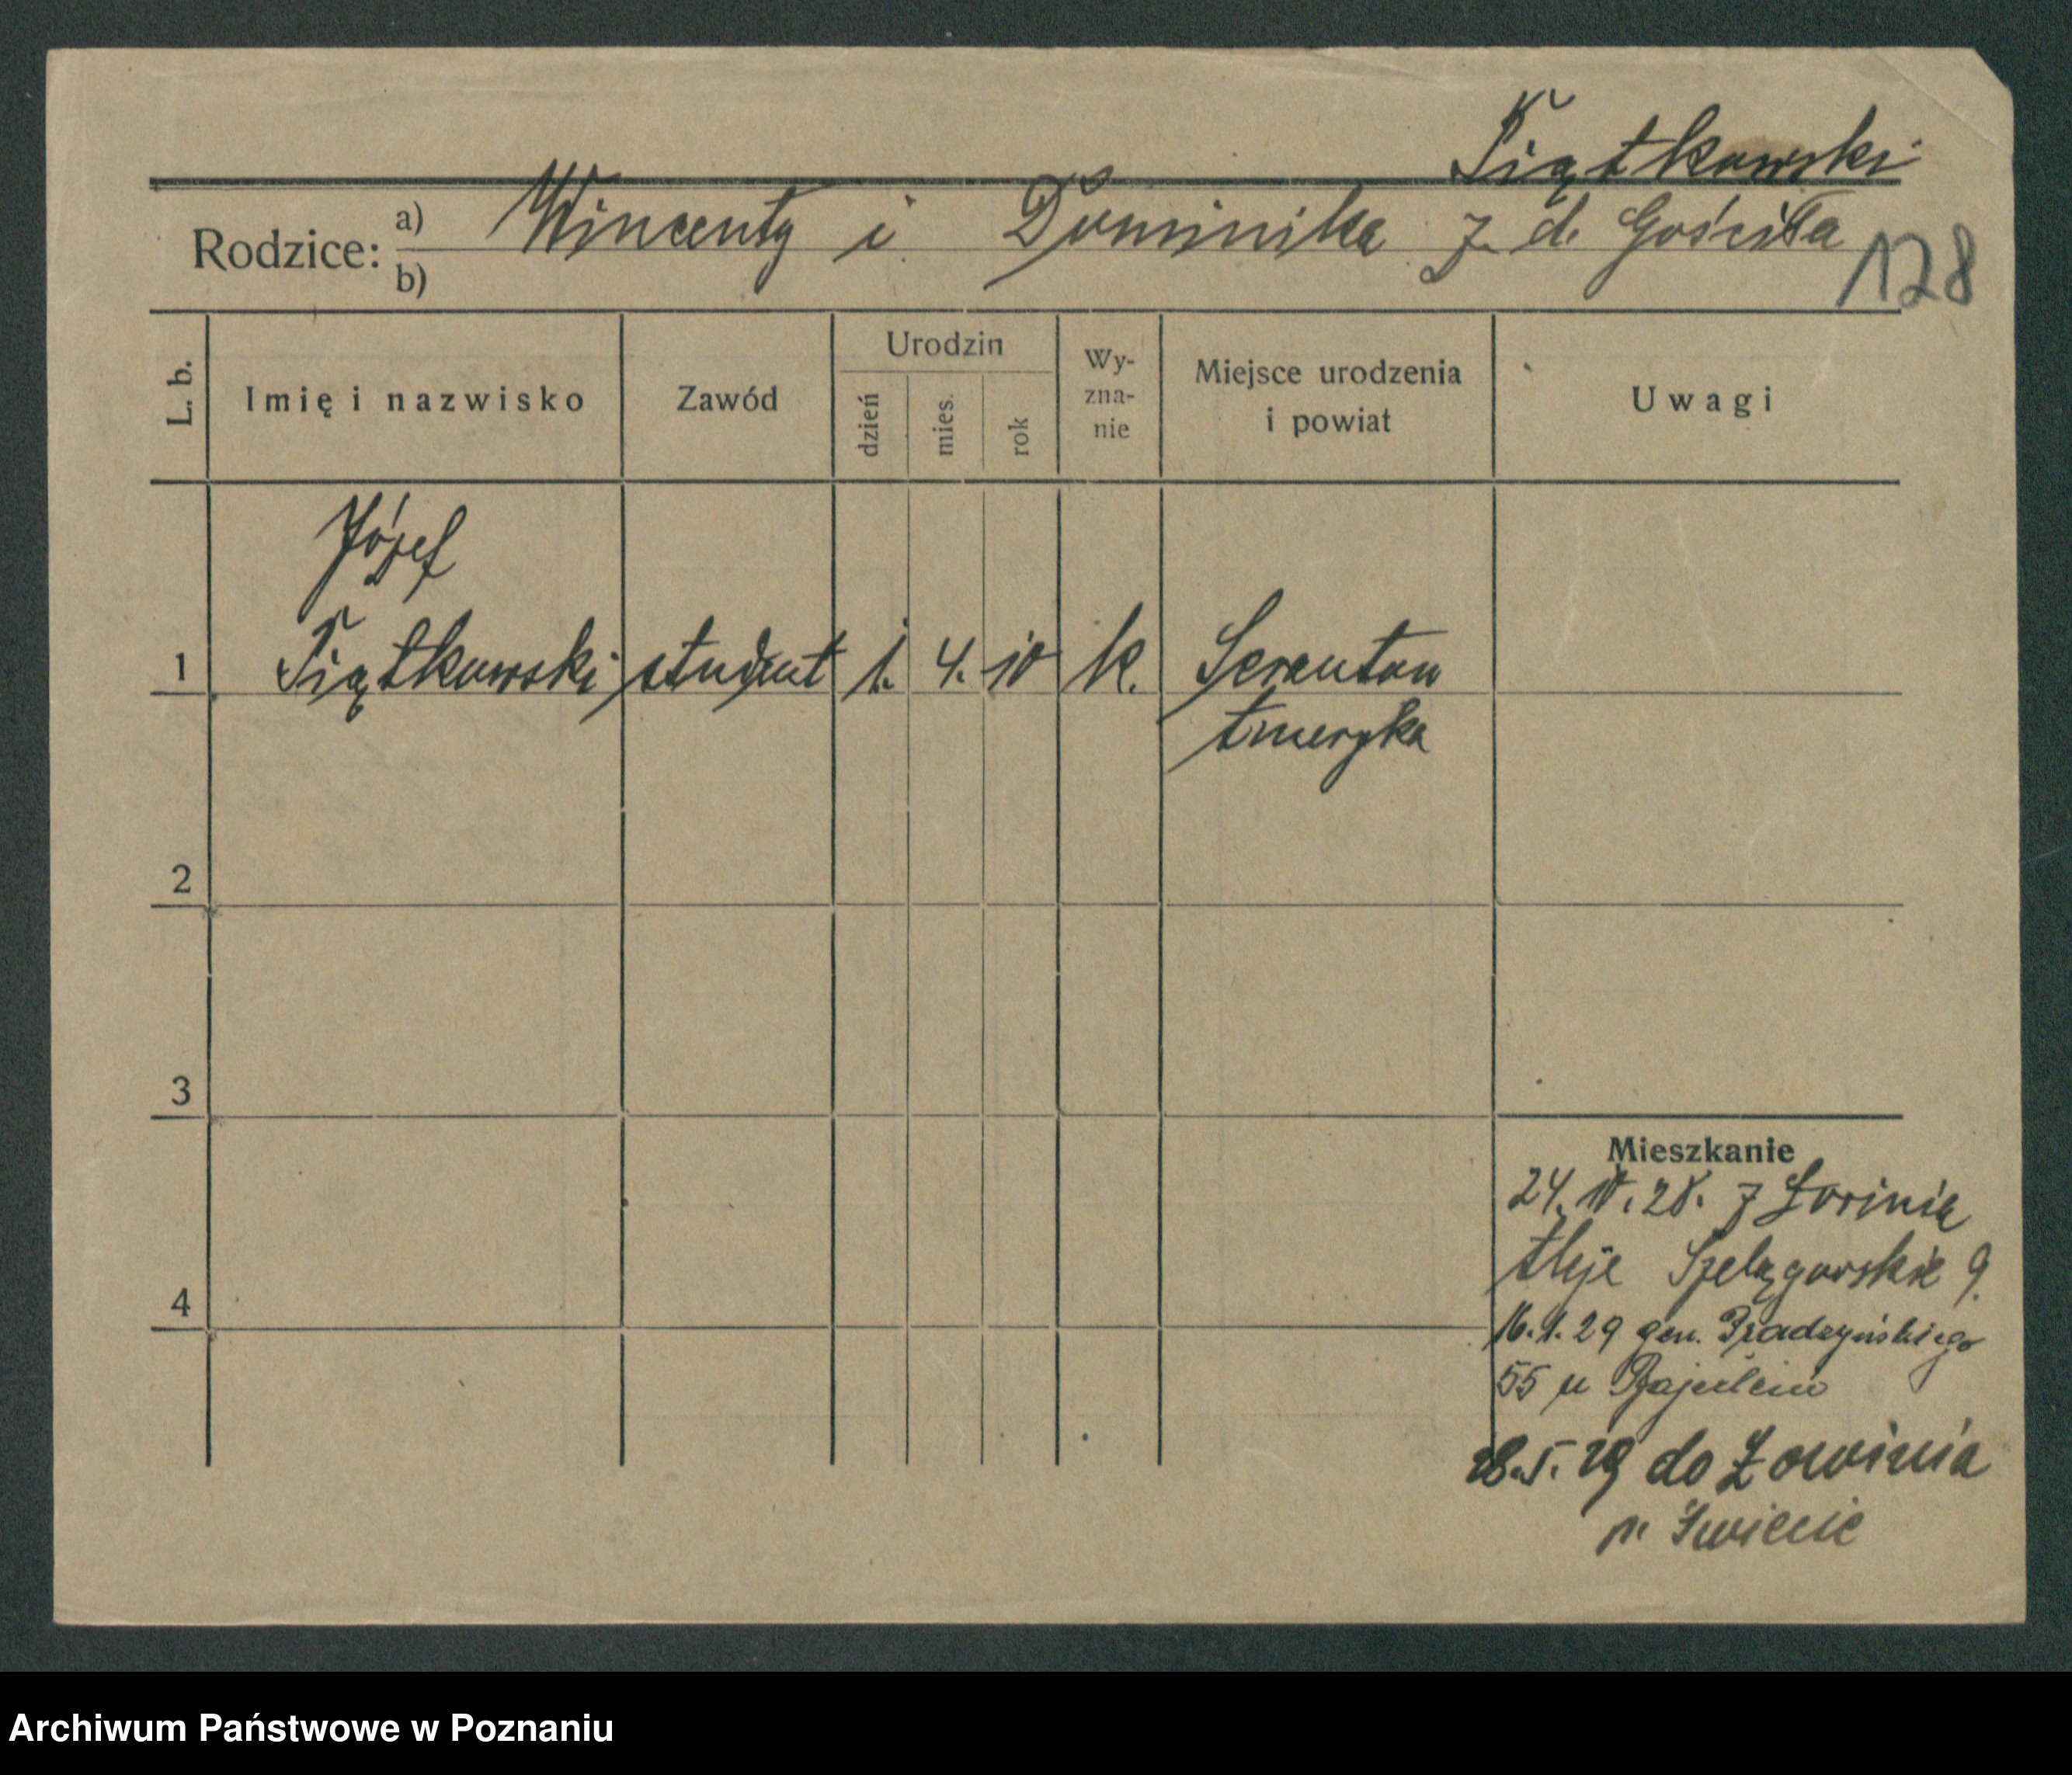 Piątkowski
Rodzice: a) Wincenty i Dominika z d. Gościła
b)
128
L. b.
Imię i nazwisko
Zawód
Urodzin
dzień
mies.
rok
Wy-
zna-
nie
Miejsce urodzenia
i powiat
Uwagi
Józef
1 Piątkowski student 1. 4. 10 k. Scranton
Ameryka
2
3
4
Mieszkanie
24. 28. z Łowinia
Aleje Szelągowskie 9.
16.1.29 gen. Prądzyńskiego
55 u
28.5.29 do Łowinia
p. Świecie
Archiwum Państwowe w Poznaniu